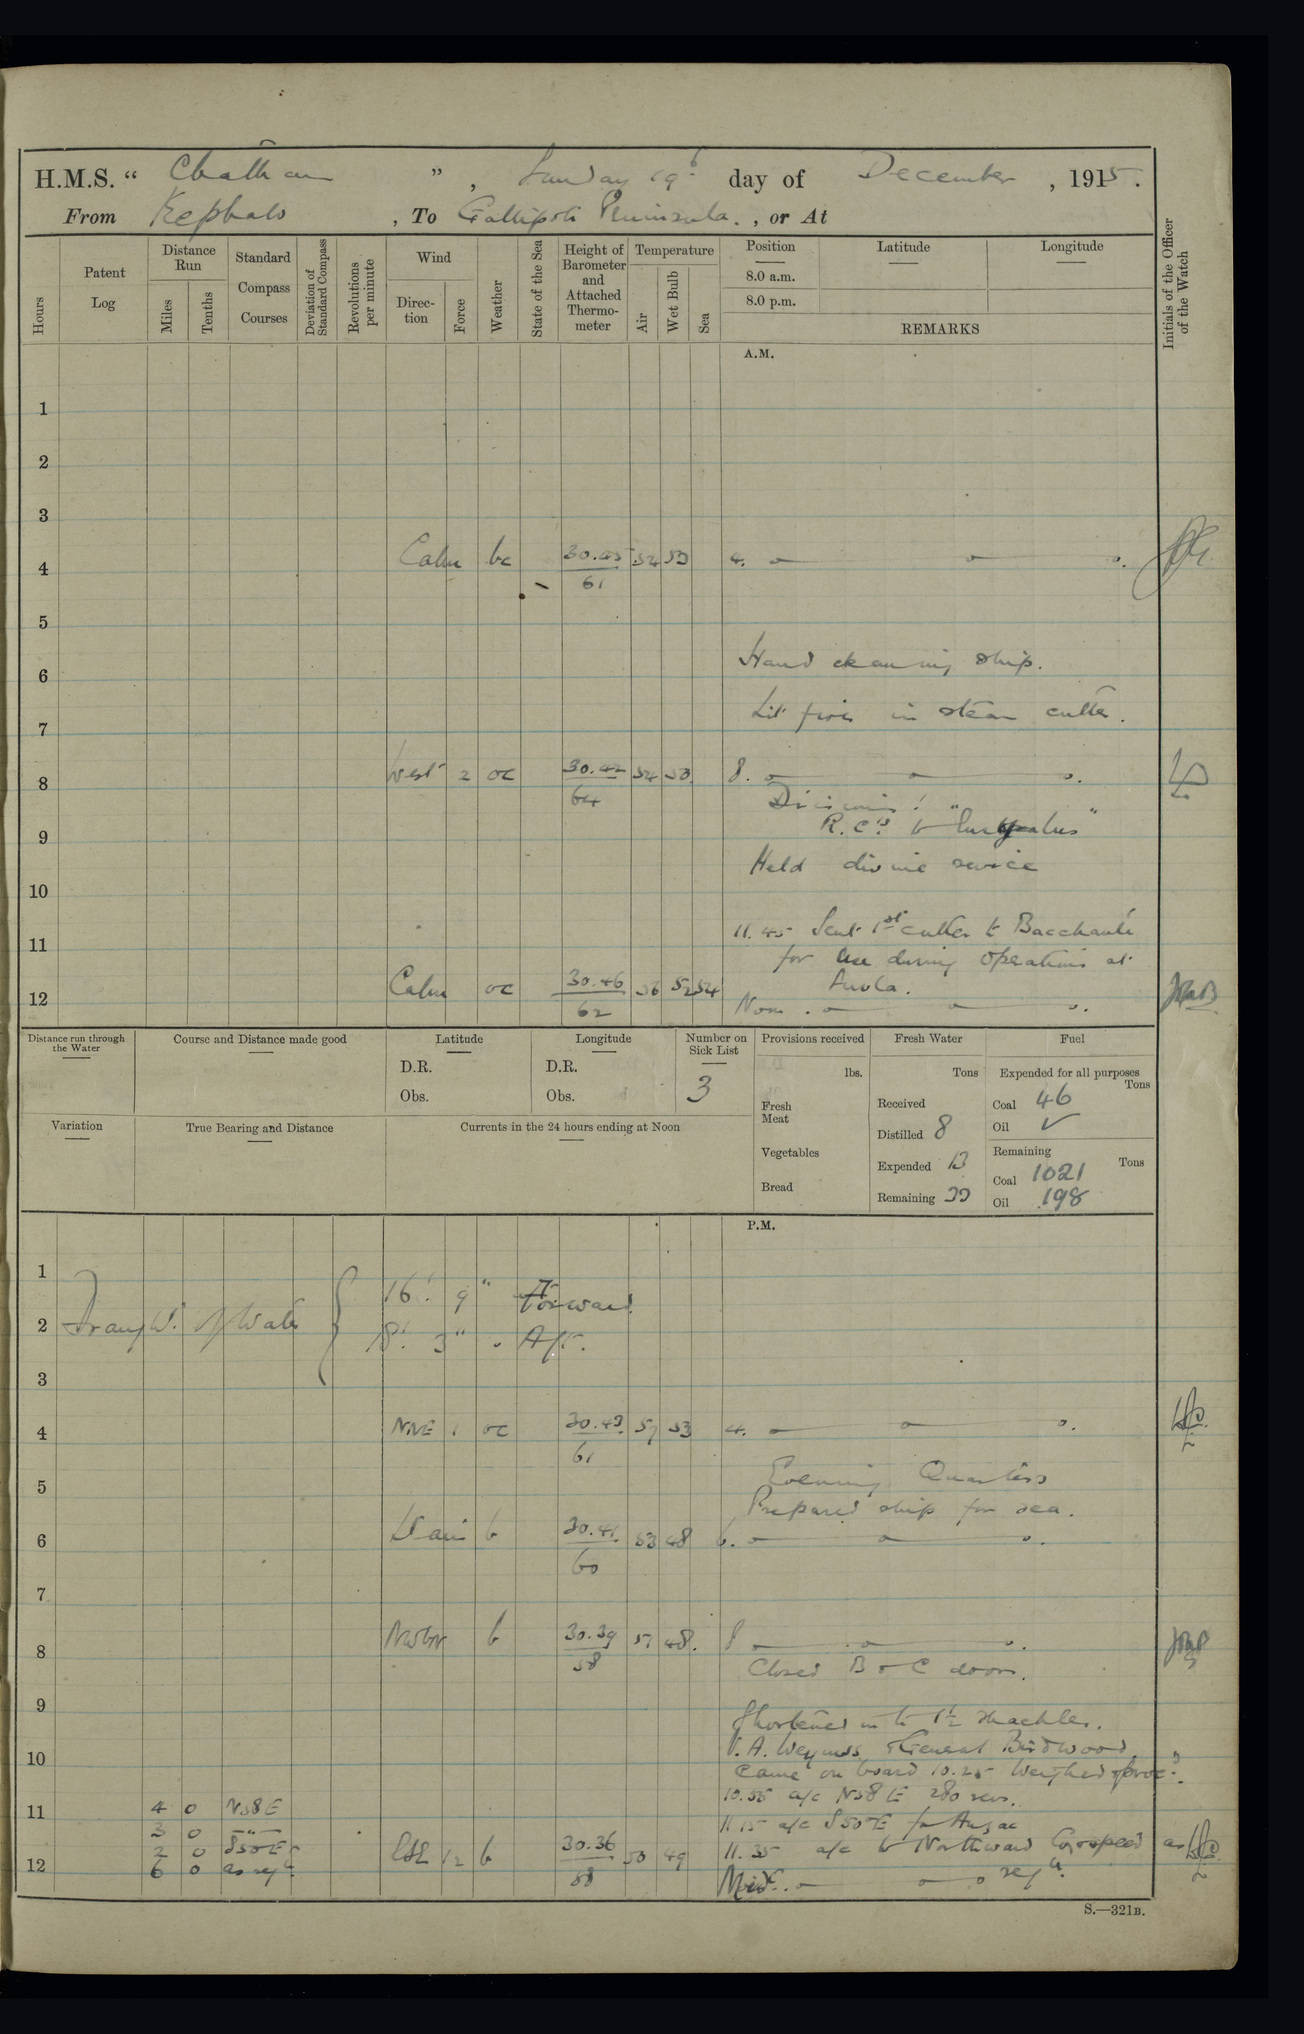 H.M.S. “ Chatham ” , Sunday 19th day of December , 1915 .
From Kephalo , To Gallipoli Peninsula. , or At
Hours
Patent Log
Distance Run
Miles
Tenths
Standard Compass Courses
Deviation of Standard Compass
Revolutions per minute
Wind
Direction
Force
Weather
State of the Sea
Height of Barometer and Attached Thermometer
Temperature
Air
Wet Bulb
Sea
Position
8.0 a.m.
8.0 p.m.
Latitude
Longitude
REMARKS
Initials of the Officer of the Watch
A.M.
1
2
3
4 Calm bc 30.45 61 54 53 4.
5
Hands cleaning ship.
6
Lit fires in steam cutter.
7
8 West 2 oc 30.42 64 54 53 8.
Divisions.
R.C's to "Euryalus"
9
Held divine service
10
11.45 Sent 1st cutter to Bacchante
11
for use during operations at
Suvla.
12 Calm oc 30.46 62 56 52 54 Noon.
Distance run through the Water
Course and Distance made good
Latitude
D.R.
Obs.
Longitude
D.R.
Obs.
Number on Sick List
3
Provisions received
lbs.
Fresh Meat
Vegetables
Bread
Fresh Water
Tons
Received
Distilled 8
Expended 13
Remaining
Fuel
Expended for all purposes
Tons
Coal 46
Oil ✓
Remaining
Tons
Coal 1021
Oil 198
Variation
True Bearing and Distance
Currents in the 24 hours ending at Noon
P.M.
1
16' 9" Forward
2 Draught of Water
18' 3" . Aft.
3
4 NNE 1 oc 30.43 61 57 53 4.
Evening Quarters
5
Prepared ship for sea.
6 b 30.41 60 53 48 6.
7
8 NWbN b 30.39 58 51 48. 8
Closed B & C doors.
9
Shortened in to 1½ shackles.
V.A. Weymss & General Birdwood
10
came on board 10.25 Weighed & procd.
10.35 a/c N38E 280 revs.
11 4 0 N38E
3 0 —"— 11.15 a/c S50E for Anzac
2 0 S50E ESE 1/2 b 30.36 58 50 49 11.35 a/c to Northward Co & speed as
12 6 0 as reqd. reqd.
Midt.
S.—321B.